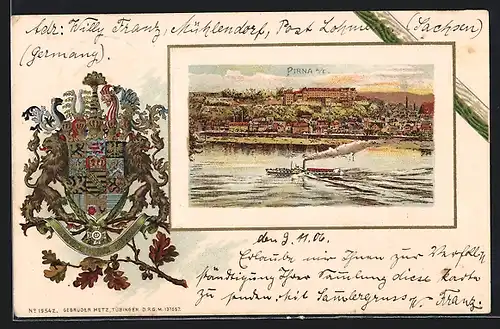 Adr: Willy Franz, Mühlendorf, Post Lohmen (Sachsen)
(Germany).
PIRNA a/E.
den 9. 11. 06.
Erlaube mir Ihnen zur Vervoll-
ständigung Ihrer Samlung diese Karte
zu senden. Mit Samlergruss Franz.
No 19542. GEBRÜDER METZ, TÜBINGEN D.R.G.M. 137057.